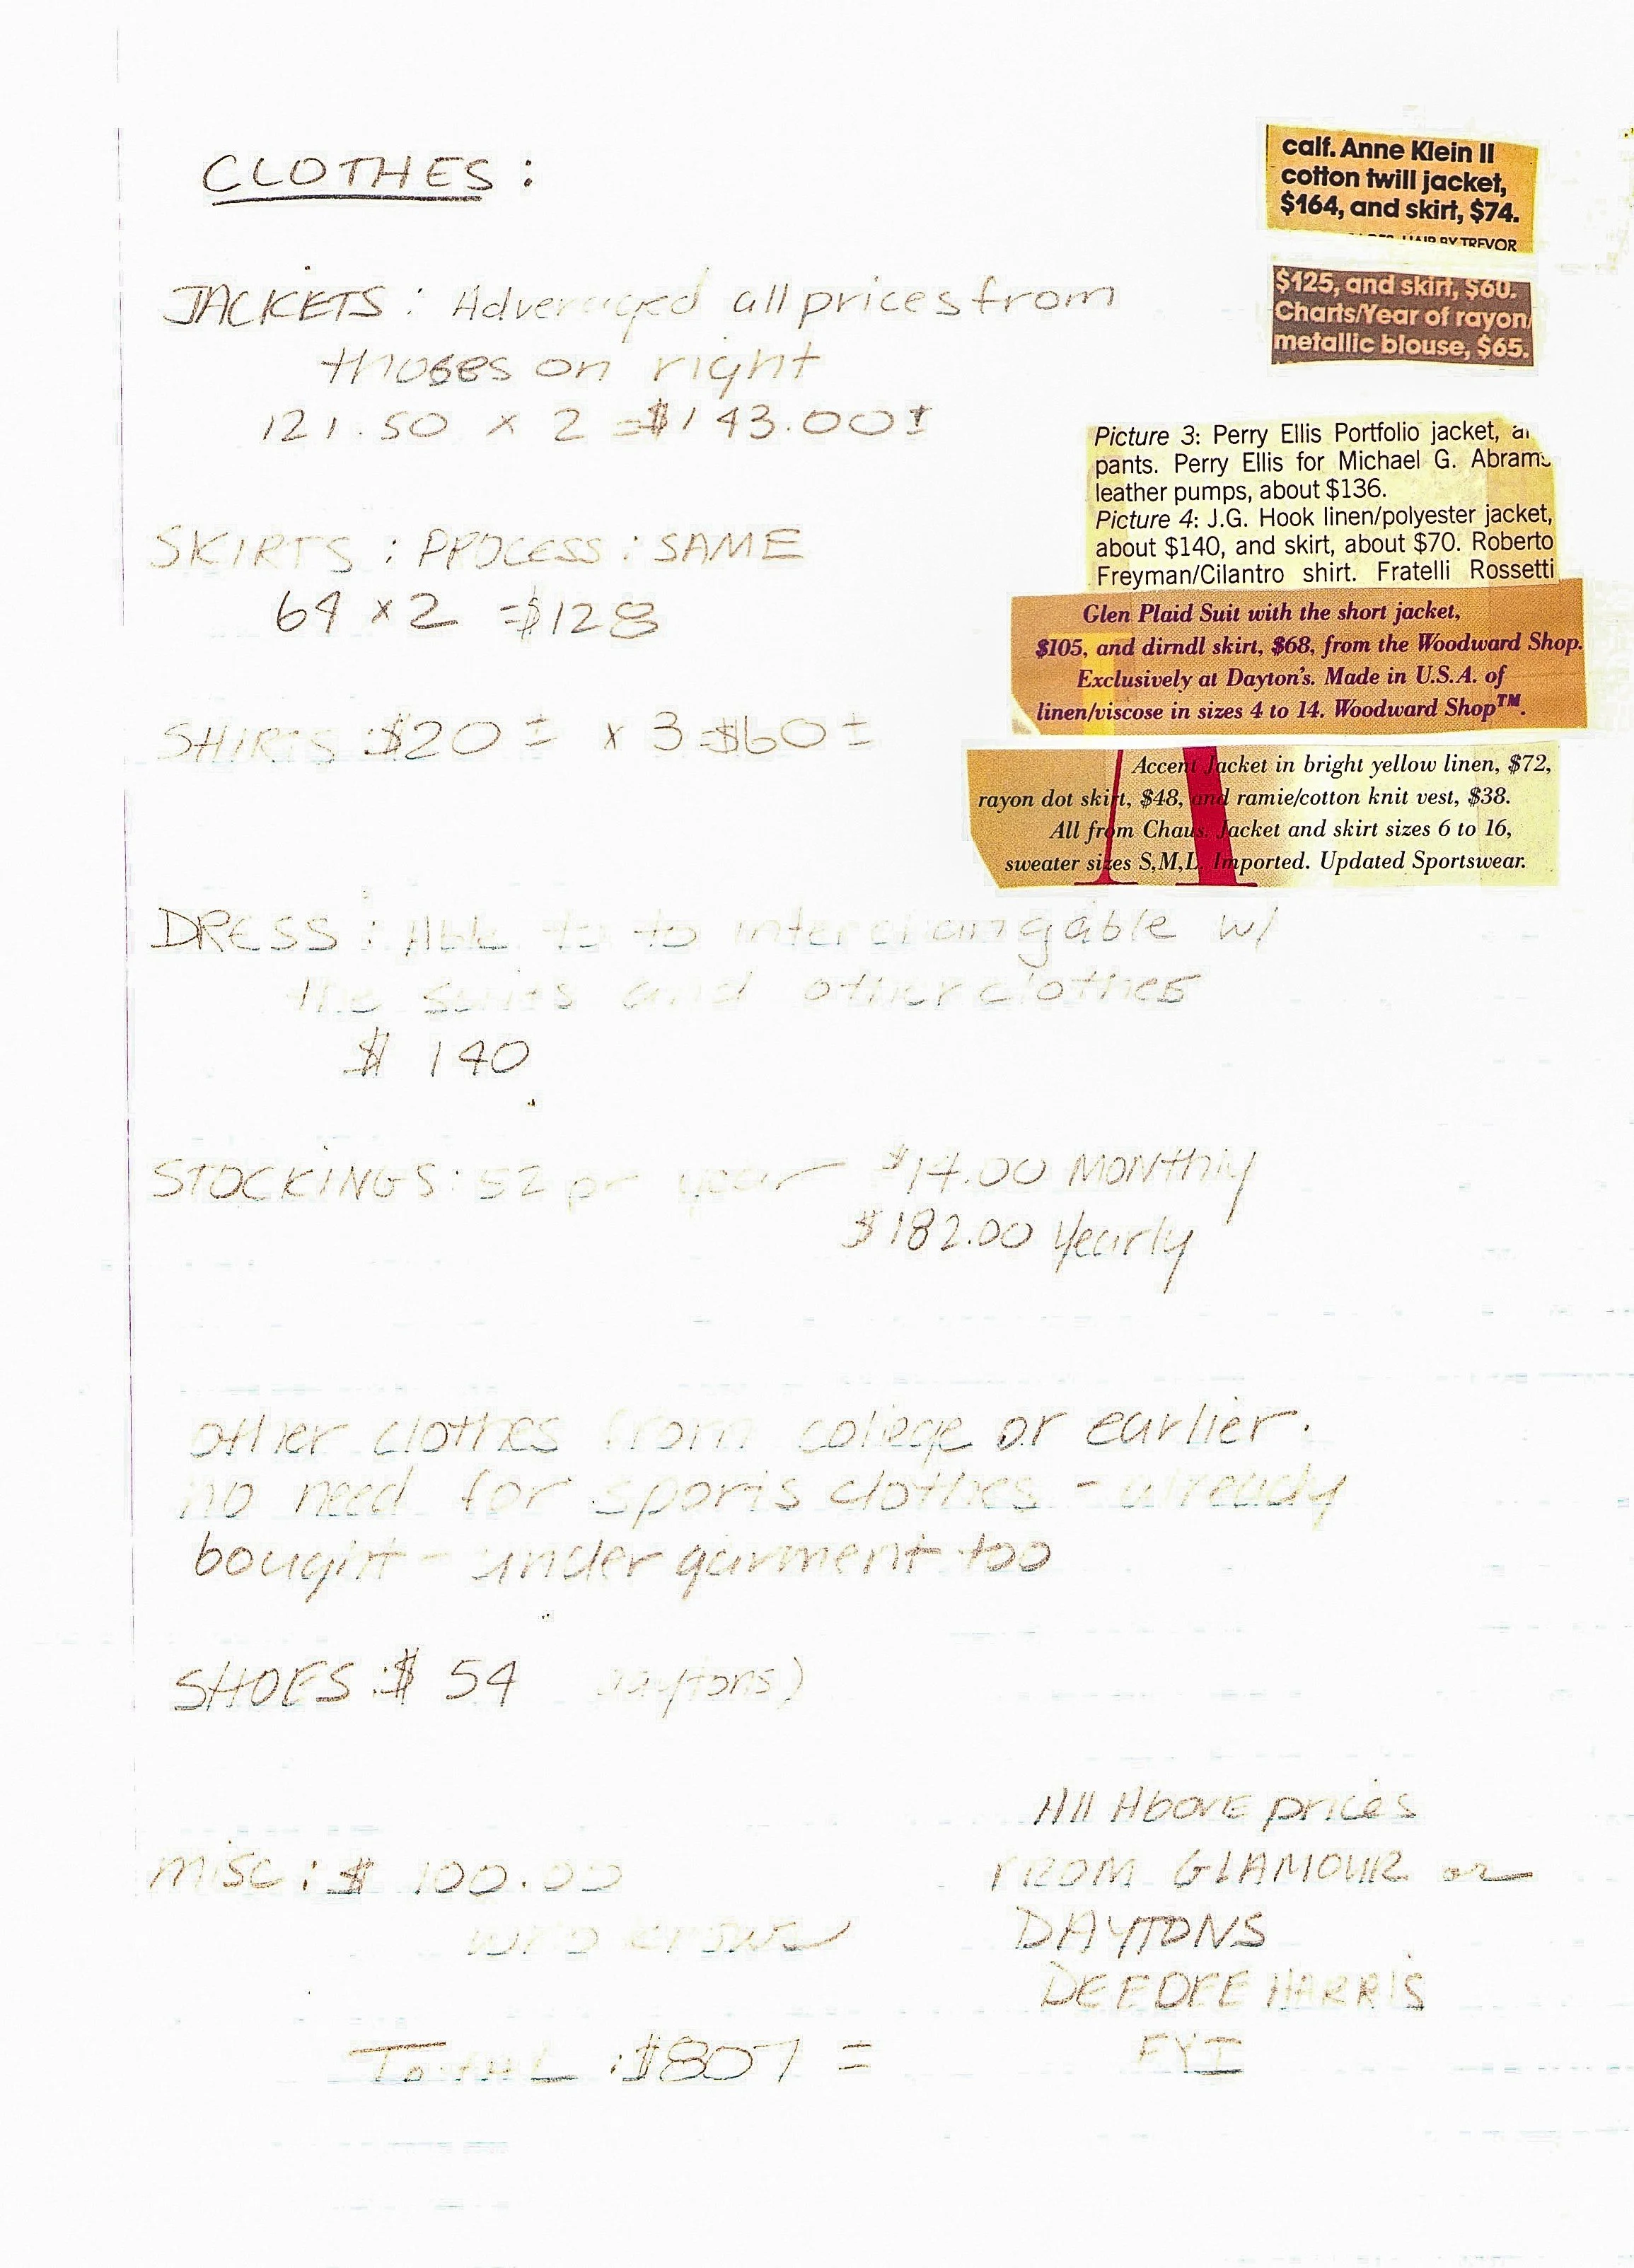 CLOTHES:
JACKETS: Adveraged all prices from
thoses on right
121.50 x 2 = $143.00±
SKIRTS: PROCESS: SAME
64 x 2 = $128
SHIRTS $20± x 3 = $60±
DRESS: Able to to interchangable w/
the suits and other clothes
$ 140
STOCKINGS: 52 pr year $14.00 MONthly
$182.00 Yearly
other clothes from college or earlier.
no need for sports clothes - already
bought - under garment too
SHOES: $ 54 Daytons)
misc: $ 100.00
Total: $807 =
All Above prices
FROM GLAMOUR or
DAYTONS
DEEDEE HARRIS
FYI
calf. Anne Klein II
cotton twill jacket,
$164, and skirt, $74.
HAIR BY TREVOR
$125, and skirt, $60.
Charts/Year of rayon/
metallic blouse, $65.
Picture 3: Perry Ellis Portfolio jacket,
pants. Perry Ellis for Michael G. Abrams
leather pumps, about $136.
Picture 4: J.G. Hook linen/polyester jacket,
about $140, and skirt, about $70. Roberto
Freyman/Cilantro shirt. Fratelli Rossetti
Glen Plaid Suit with the short jacket,
$105, and dirndl skirt, $68, from the Woodward Shop.
Exclusively at Dayton's. Made in U.S.A. of
linen/viscose in sizes 4 to 14. Woodward Shop™.
Accent Jacket in bright yellow linen, $72,
rayon dot skirt, $48, and ramie/cotton knit vest, $38.
All from Chaus. Jacket and skirt sizes 6 to 16,
sweater sizes S,M,L. Imported. Updated Sportswear.